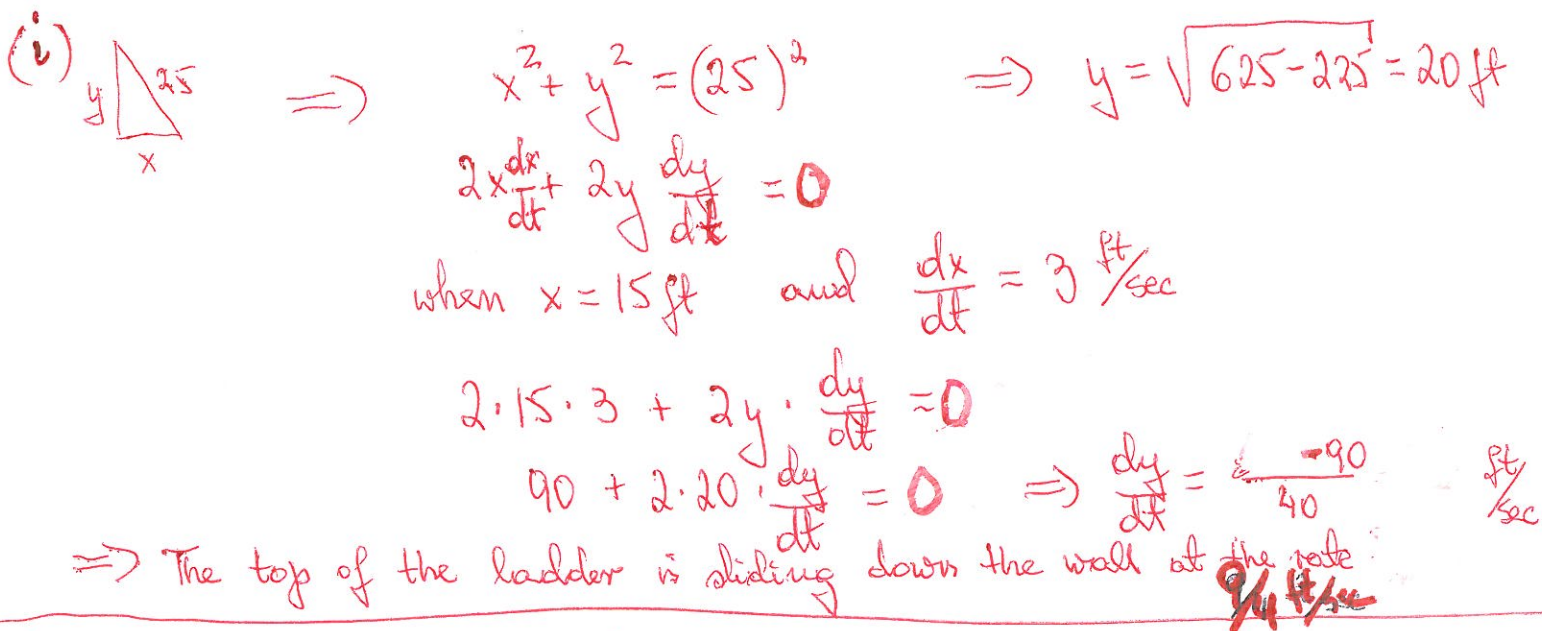 (i) y 25 x ⇒ x² + y² = (25)² ⇒ y = √625-225 = 20 ft
2x dx/dt + 2y dy/dt = 0
when x = 15 ft and dx/dt = 3 ft/sec
2·15·3 + 2y · dy/dt = 0
90 + 2·20 · dy/dt = 0 ⇒ dy/dt = -90/40 ft/sec
⇒ The top of the ladder is sliding down the wall at the rate
9/4 ft/sec